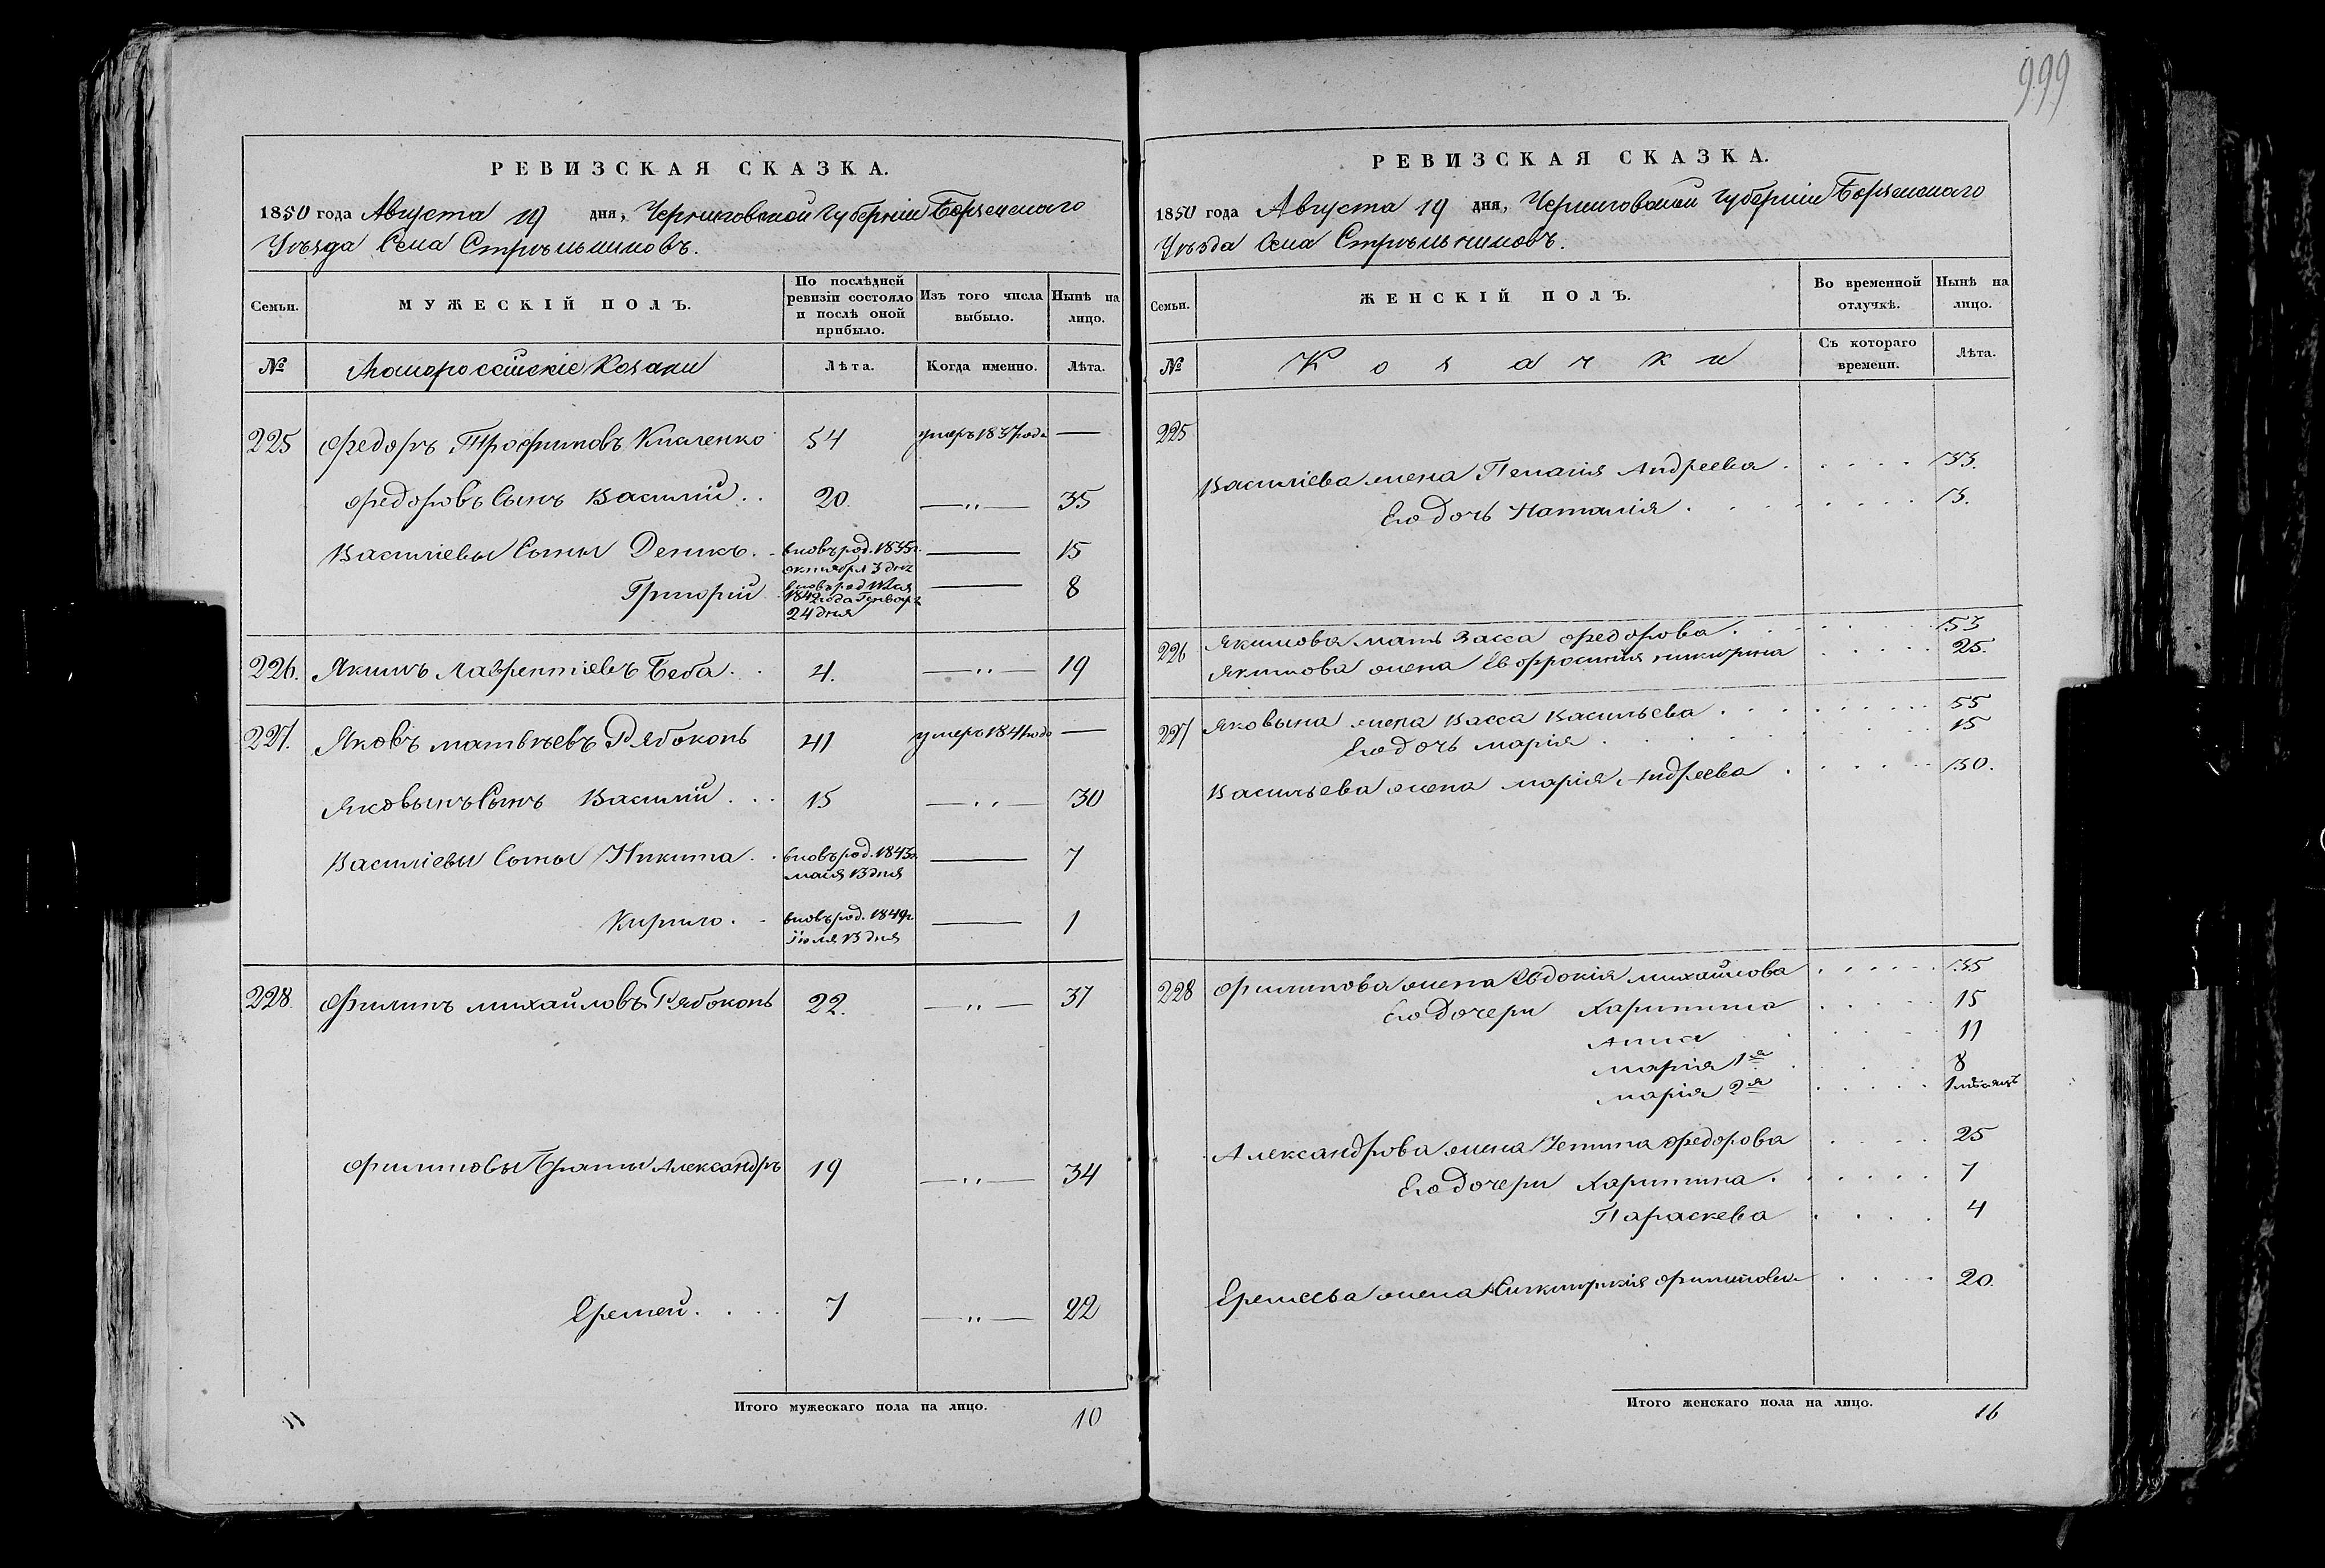 999
РЕВИЗСКАЯ СКАЗКА.
1850 года Августа 19 дня, Черниговской Губерніи Борзенскаго
Уѣзда Села Стрѣльниковъ.
Семьи. МУЖЕСКІЙ ПОЛЪ. По послѣдней ревизіи состояло и послѣ оной прибыло. Изъ того числа выбыло. Нынѣ на лицо.
№ Малороссійскіе Козаки Лѣта. Когда именно. Лѣта.
225 Федоръ Трофимовъ 54 умеръ 1837 года —
Федоровъ Сынъ Василій . . 20. —„— 35
Василіевы Сыны Денисъ . . вновь род. 1835 г. октября 3 дня — 15
Григорій вновь род 1842 года Генваря 24 дня — 8
226. Якимъ Лаврентіевъ Беба . . 4. —„— 19
227. Яковъ Матвѣевъ Рябоконь 41 умеръ 1841 года —
Яковынъ Сынъ Василій . . . 15 —„— 30
Василіевы Сыны Никита . . вновь род. 1843 г. маія 13 дня — 7
Кирило . . вновь род. 1849 г. іюля 13 дня — 1
228. Филипъ Михайловъ Рябоконь 22. —„— 37
Филиповы Браты Александръ 19 —„— 34
Еремей . . . . 7 —„— 22
Итого мужескаго пола на лицо. 10
РЕВИЗСКАЯ СКАЗКА.
1850 года Августа 19 дня, Черниговской Губерніи Борзенскаго
Уѣзда Села Стрѣльниковъ.
Семьи. ЖЕНСКІЙ ПОЛЪ. Во временной отлучкѣ. Нынѣ на лицо.
№ Козачки Съ котораго времени. Лѣта.
225
Василіева жена Пелагія Андреева . . . . . 33.
Его дочь Наталія . . . . . . . 13.
226 Якимова мать Васса Федорова . . . . . . 53
Якимова жена Евфросинія . . . . . 25.
227 Яковына жена Васса Васильева . . . . . . . . . 55
Его дочь Марія . . . . . . . 15
Васильева жена Марія Андреева . . . . . . 30.
228 Филипова жена Евдокія Михайлова . . . . . 35
Его дочери Харитина . . . . 15
Анна . . . . 11
Марія 1я . . . . 8
Марія 2я . . . . . 1 мѣсяцъ
Александрова жена Федорова . . . . 25
Его дочери Харитина . . . . . . 7
Параскева . . . . 4
Еремеева жена Филипова . . . . 20.
Итого женскаго пола на лицо. 16